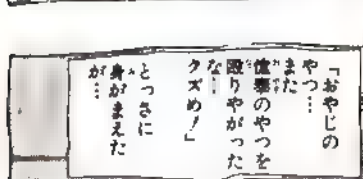 「おやじの
やつ…
また
徳泰のやつを
殴りやがった
な…
クズめ！」
とっさに
身がまえた
が…